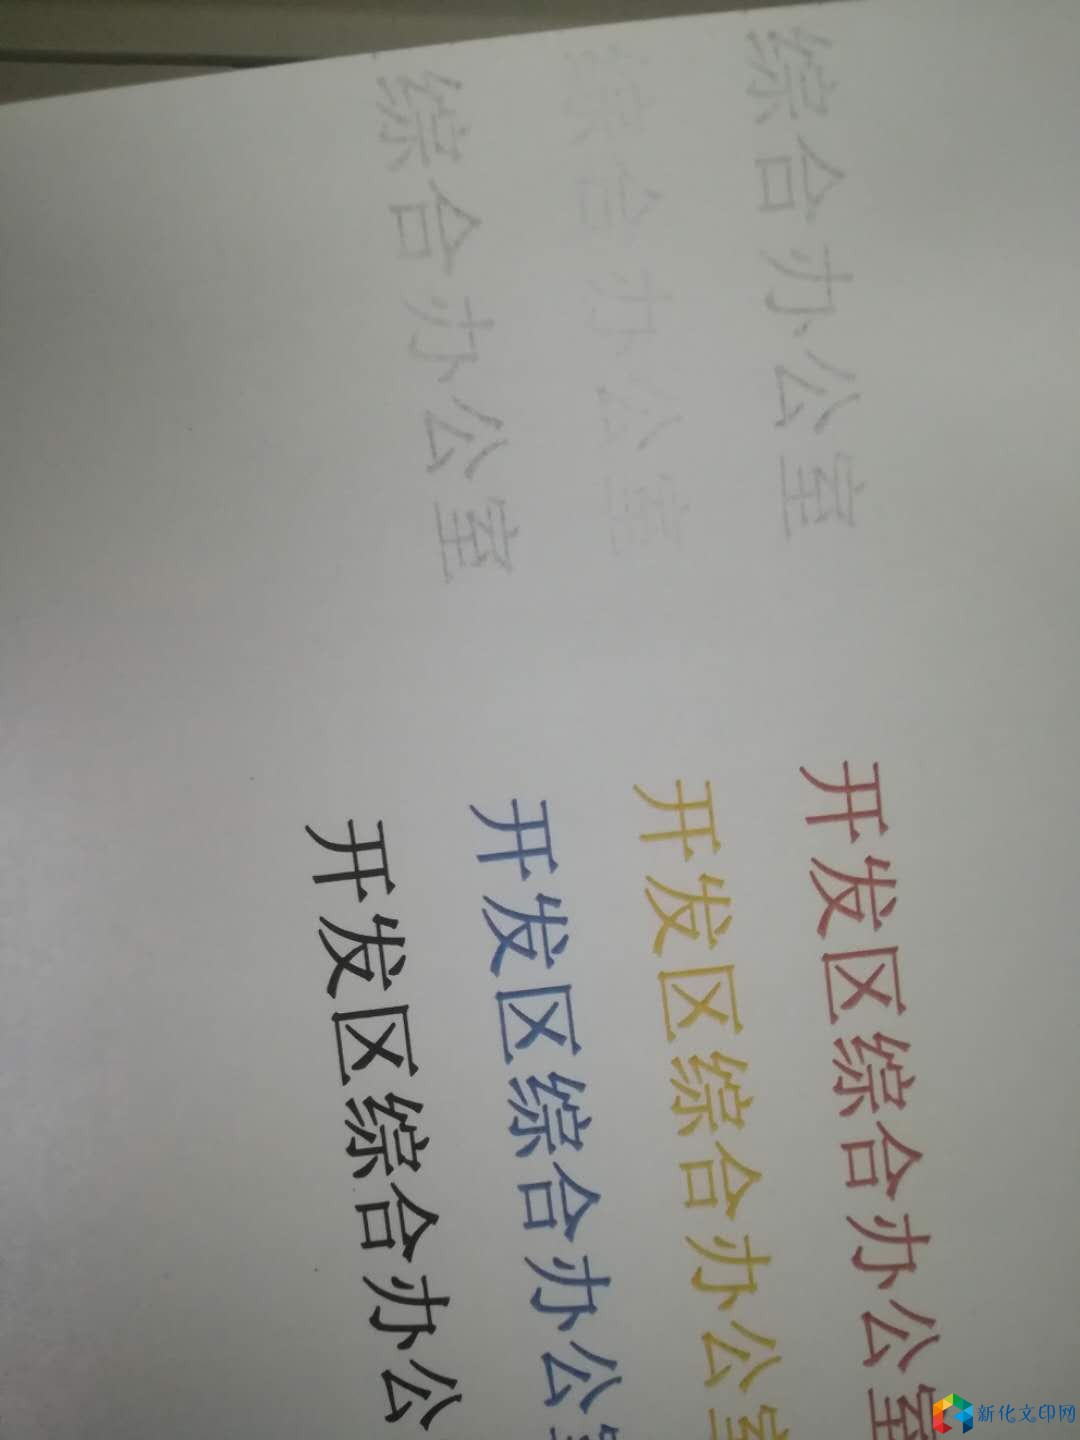 综合办公室 开发区综合办公室
综合办公室 开发区综合办公室
综合办公室 开发区综合办公室
开发区综合办公
新化文印网